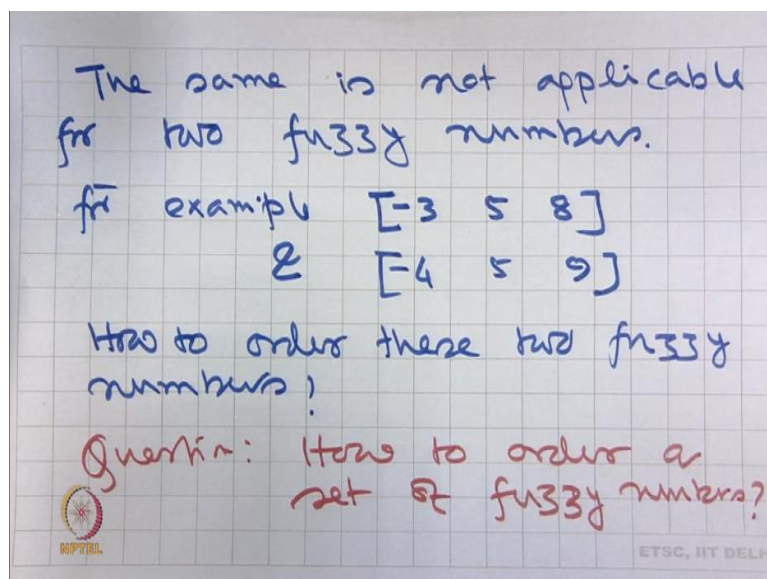 The same is not applicable
for two fuzzy numbers.
for example [-3 5 8]
& [-4 5 9]
How to order these two fuzzy
numbers?
Question: How to order a
set of fuzzy numbers?
NPTEL
ETSC, IIT DELH